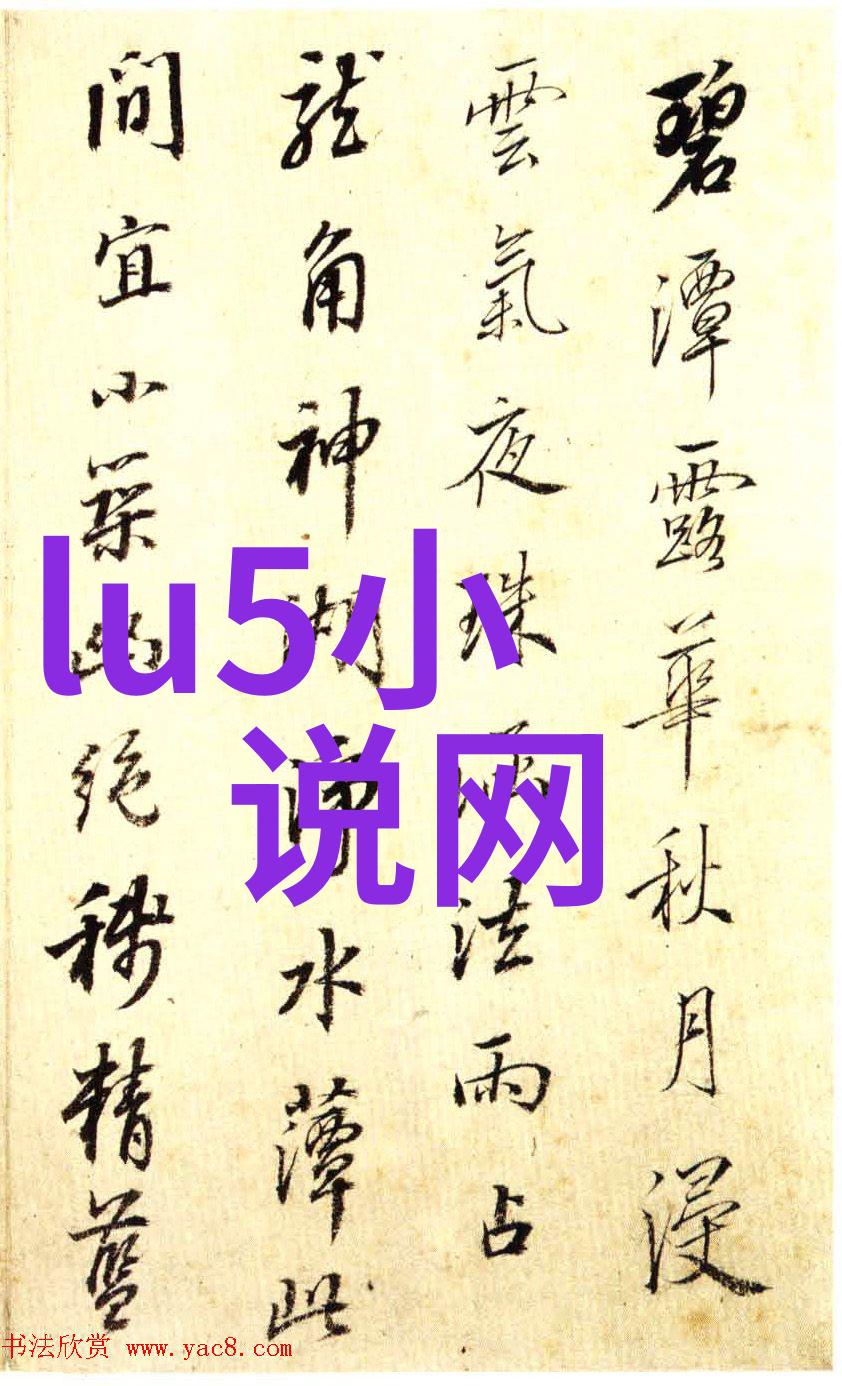 碧潭露華秋月浸
雲氣夜珠法雨占
龍角神湖水藫此
間宜小築幽絕移精藍
lu5小
说网
书法欣赏 www.yac8.com